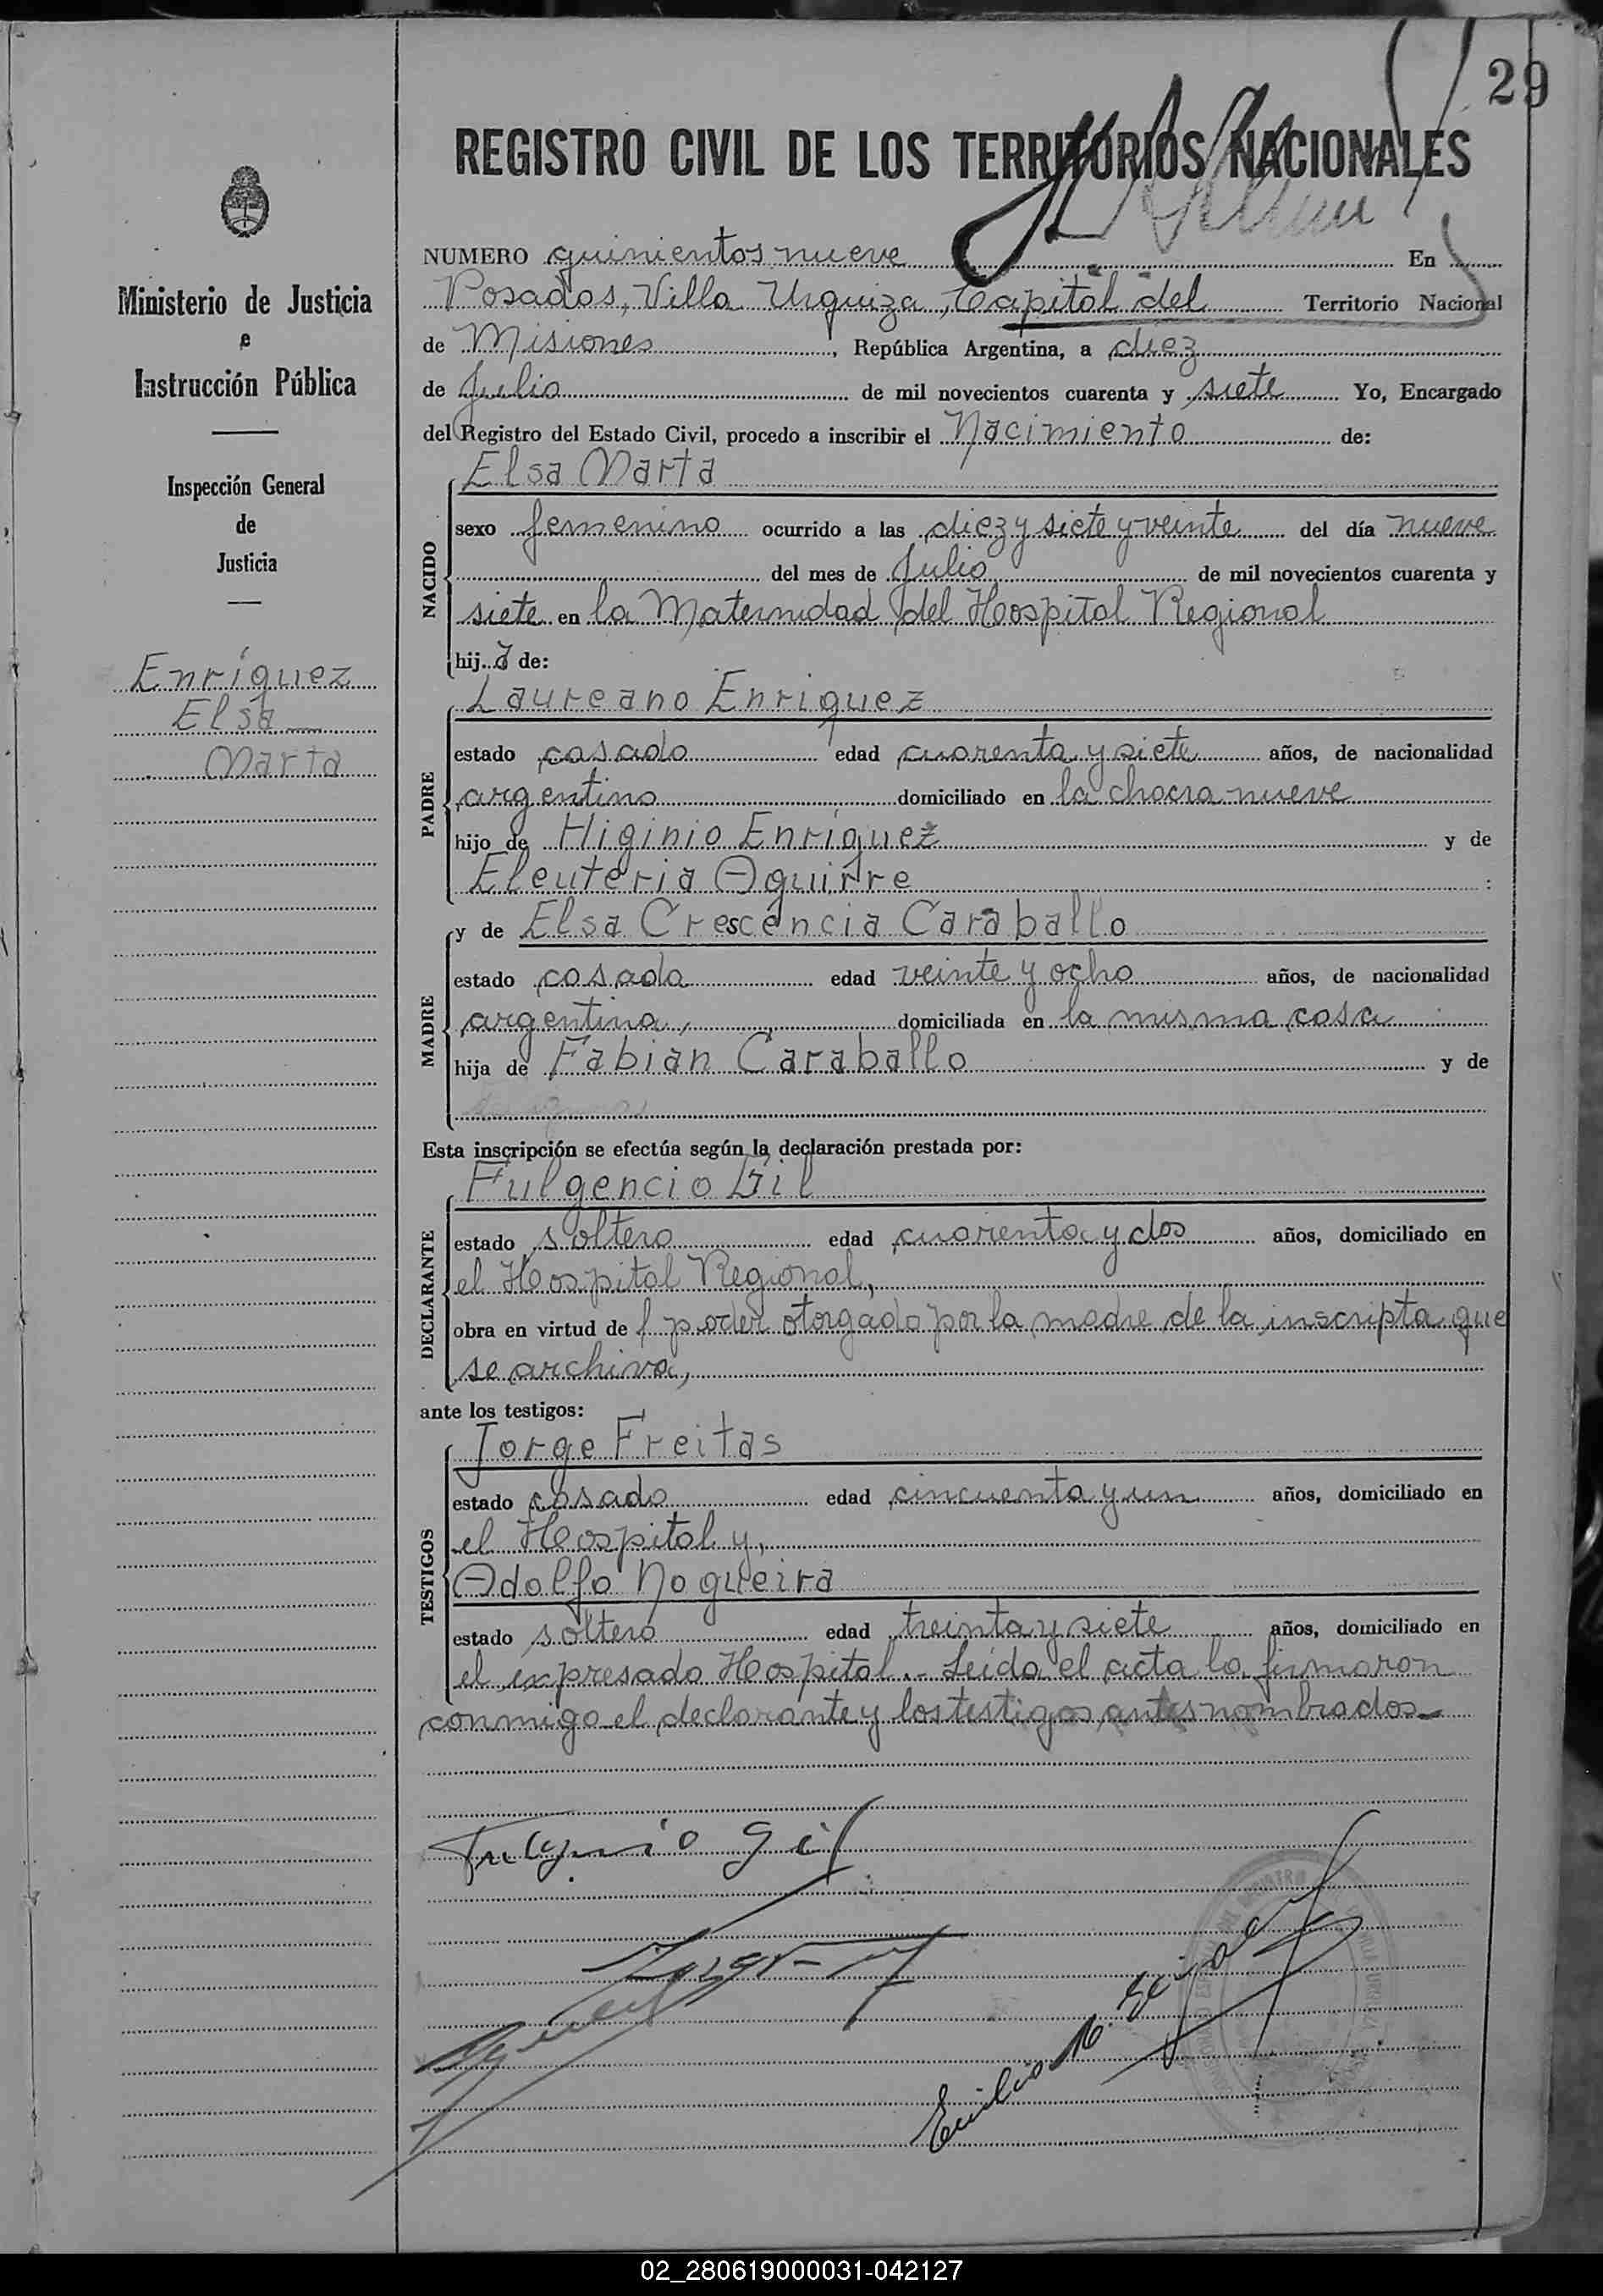 29
REGISTRO CIVIL DE LOS TERRITORIOS NACIONALES
Ministerio de Justicia
e
Instrucción Pública
Inspección General
de
Justicia
Enríquez
Elsa
Marta
NUMERO quinientos nueve En
Posadas, Villa Urquiza, Capital del Territorio Nacional
de Misiones, República Argentina, a diez
de Julio de mil novecientos cuarenta y siete Yo, Encargado
del Registro del Estado Civil, procedo a inscribir el Nacimiento de:
NACIDO
Elsa Marta
sexo femenino ocurrido a las diez y siete y veinte del día nueve
del mes de Julio de mil novecientos cuarenta y
siete en la Maternidad del Hospital Regional
hija de:
PADRE
Laureano Enriquez
estado casado edad cuarenta y siete años, de nacionalidad
argentino domiciliado en la chacra nueve
hijo de Higinio Enríquez y de
Eleuteria Aguirre :
MADRE
y de Elsa Crescencia Caraballo
estado casada edad veinte y ocho años, de nacionalidad
argentina, domiciliada en la misma casa
hija de Fabian Caraballo y de
Esta inscripción se efectúa según la declaración prestada por:
DECLARANTE
Fulgencio Gil
estado soltero edad cuarenta y dos años, domiciliado en
el Hospital Regional,
obra en virtud de poder otorgado por la madre de la inscripta que
se archiva,
ante los testigos:
TESTIGOS
Jorge Freitas
estado casado edad cincuenta y un años, domiciliado en
el Hospital y,
Adolfo Nogueira
estado soltero edad treinta y siete años, domiciliado en
el expresado Hospital.- Leida el acta la firmaron
conmigo el declarante y los testigos antes nombrados-
Gil
Emilio
02_280619000031-042127